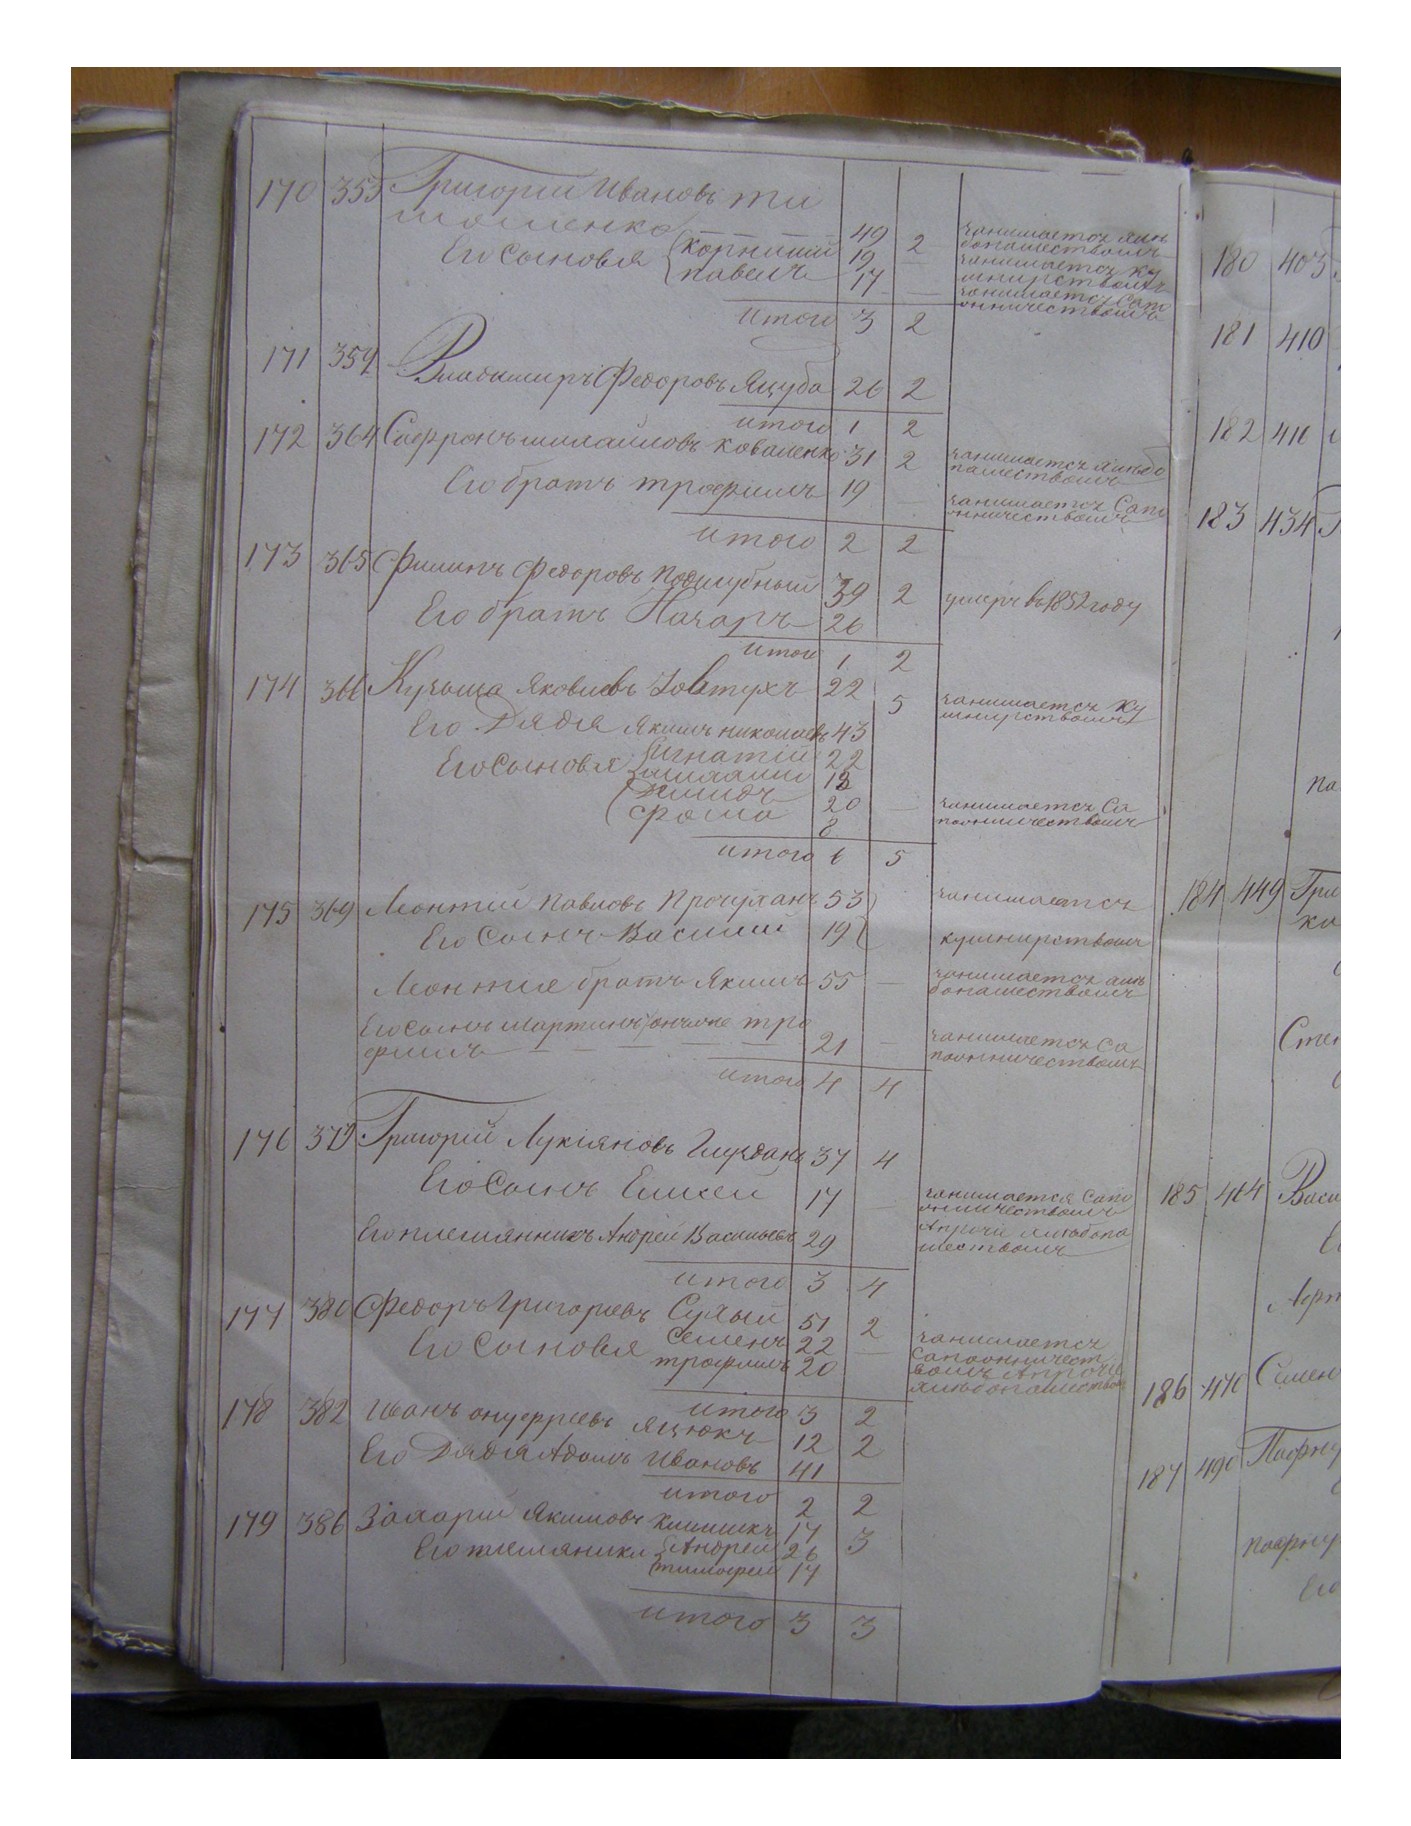 170 353 Григорий Ивановъ Ти
мошенко 49 2 занимается хлѣ
бопашествомъ
Его Сыновья Корнилий 19 — занимается ку
шнирствомъ
Павелъ 17 — занимается Сапо
жничествомъ
итого 3 2
171 359 Владимиръ Федоровъ Яцуба 26 2
итого 1 2
172 364 Софронъ Михайловъ Коваленко 31 2 занимается хлѣбо
пашествомъ
Его братъ Трофимъ 19 — занимается Сапо
жничествомъ
итого 2 2
173 365 Филипъ Федоровъ Поддубный 39 2 умеръ въ 1852 году
Его братъ Назаръ 26
итого 1 2
174 366 Кузьма Яковлевъ 22 5 занимается Ку
шнирствомъ
Его Дядя Якимъ Николаевъ 43
Его Сыновья Игнатій 22
Михаил 18
Демидъ 20 — занимается Са
пожничествомъ
Фома 8
итого 6 5
175 369 Леонтий Павловъ 53 занимается
Его Сынъ Василий 19 кушнирствомъ
Леонтия братъ Якимъ 55 — занимается хлѣ
бопашествомъ
Его Сынъ Мартинъ онъ же Тро
фимъ — — — — — 21 — занимается Са
пожничествомъ
итого 4 4
176 379 Григорій Лукіяновъ 37 4
Его Сынъ Елисей 17 — занимается Сапо
жничествомъ
Его племянникъ Андрей Васильевъ 29 Апрочи хлѣбопа
шествомъ
итого 3 4
177 380 Федоръ Григориевъ Сухый 51 2
Его Сыновья Семенъ 22 — занимается
Трофимъ 20 Сапожничест
вомъ Апрочи
хлѣбопашество
итого 3 2
178 382 Иванъ Онуфриевъ Яцюкъ 12 2
Его Дядя Адамъ Ивановъ 41
итого 2 2
179 386 Захарий Якимовъ 17 3
Его племяники Андрей 26
Тимофей 17
итого 3 3
180 403
181 410
182 411
183 434
па
184 449 Гри
ка
Степ
185 464 Васи
Е
186 476 Семен
187 490 Пафну
Пафну
Его